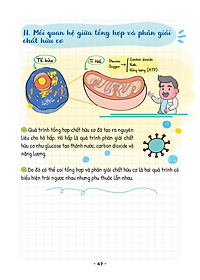 II. Mối quan hệ giữa tổng hợp và phân giải
chất hữu cơ
Tế bào
Ti thể
Glucose
Oxygen
Carbon dioxide
Nước
Năng lượng (ATP)
Quá trình tổng hợp chất hữu cơ đã tạo ra nguyên
liệu cho hô hấp. Hô hấp là quá trình phân giải chất
hữu cơ như glucose tạo thành nước, carbon dioxide và
năng lượng.
Do đó có thể coi tổng hợp và phân giải chất hữu cơ là hai quá trình có
biểu hiện trái ngược nhau nhưng phụ thuộc lẫn nhau.